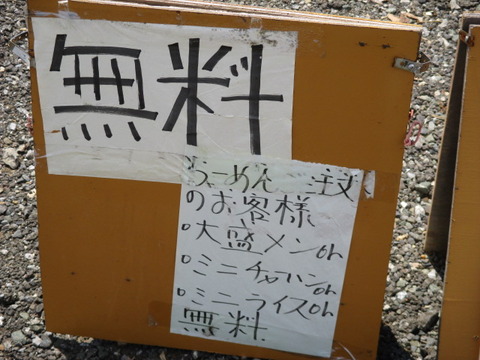 無料
らーめんご注文
のお客様
○大盛メンor
○ミニチャーハンor
○ミニライスor
無料